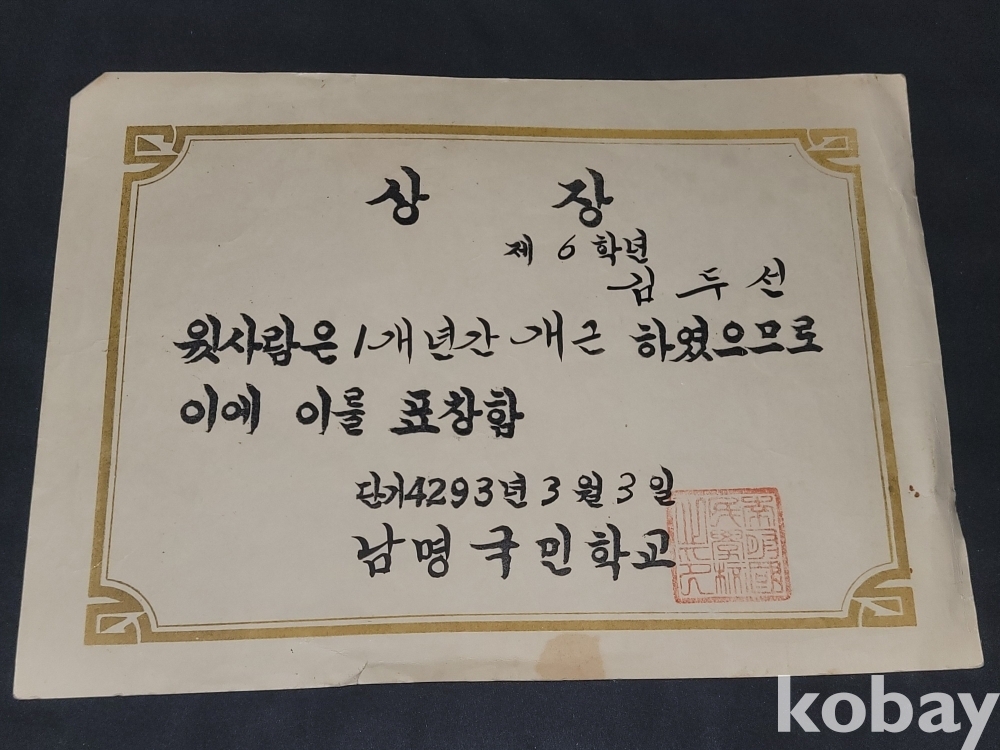 상 장
제 6 학년
김 두 선
윗사람은 1개년간 개근 하였으므로
이에 이를 표창함
단기4293년 3월 3일
남명국민학교
南明國
民學校
之印
kobay